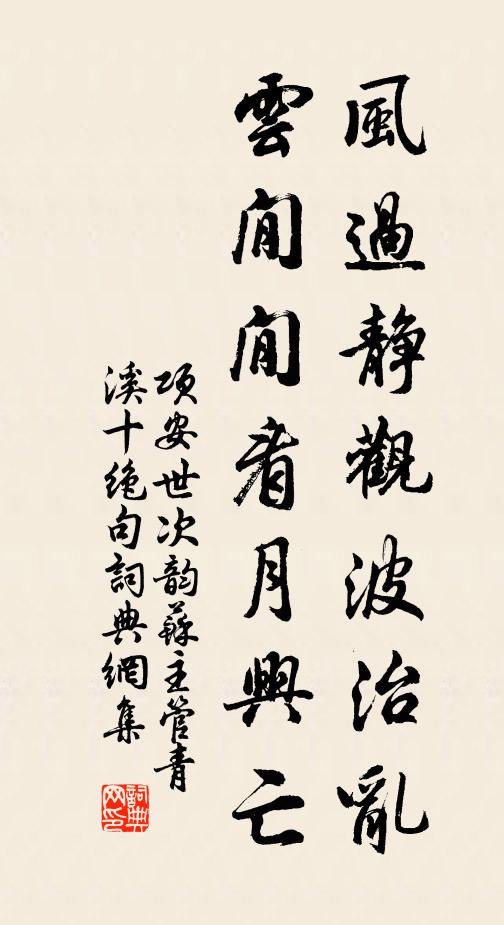 風過靜觀波治亂
雲閒閒看月興亡
項安世次韵蘇主管青
溪十絕句詞典網集
詞典
网印